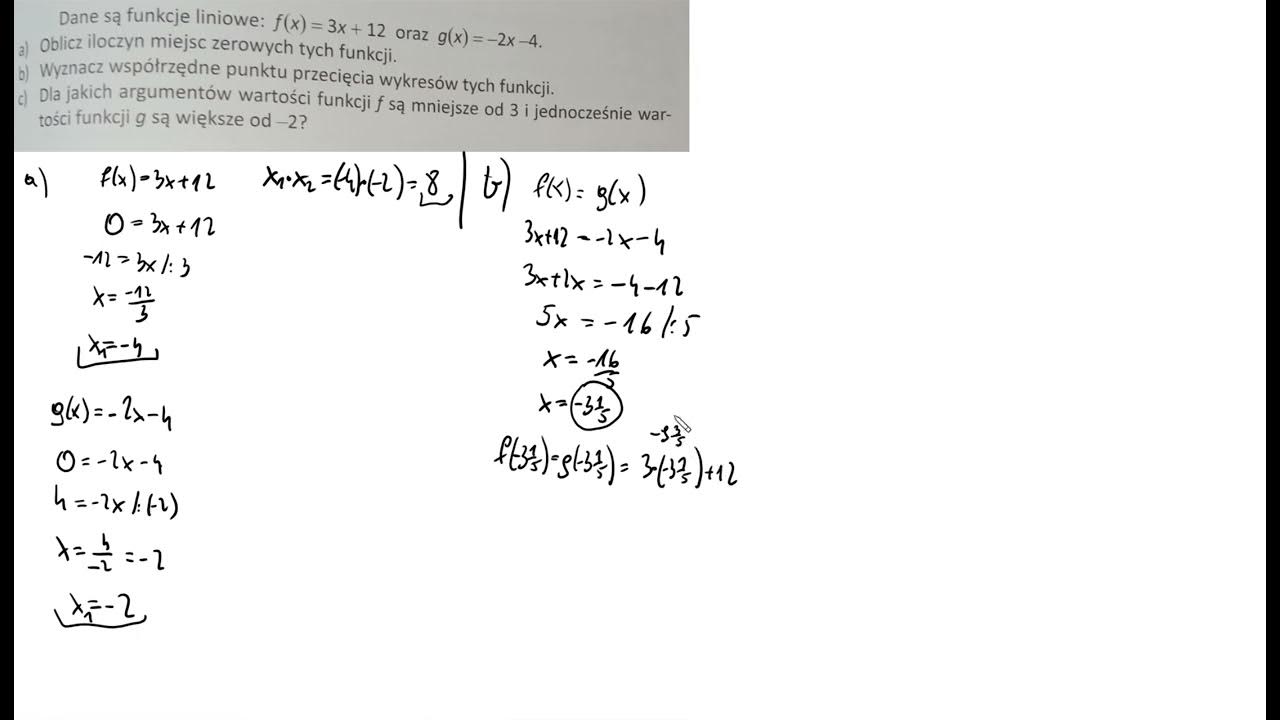 Dane są funkcje liniowe: f(x) = 3x + 12 oraz g(x) = –2x –4.
a) Oblicz iloczyn miejsc zerowych tych funkcji.
b) Wyznacz współrzędne punktu przecięcia wykresów tych funkcji.
c) Dla jakich argumentów wartości funkcji f są mniejsze od 3 i jednocześnie war-
tości funkcji g są większe od –2?
a) f(x)=3x+12
0=3x+12
-12=3x /:3
x=-12/3
x₁=-4
g(x)=-2x-4
0=-2x-4
4=-2x /:(-2)
x=4/-2=-2
x₁=-2
x₁·x₂=(-4)·(-2)=8
b) f(x)=g(x)
3x+12=-2x-4
3x+2x=-4-12
5x=-16 /:5
x=-16/5
x=-3 1/5
-9 3/5
f(-3 1/5)=g(-3 1/5)=3·(-3 1/5)+12